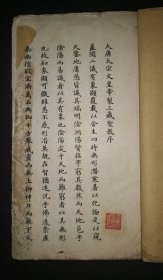 大唐太宗文皇帝製三藏聖教序
蓋聞二儀有象顯覆載以含生四時無形潛寒暑以化物是以窺
天鑒地庸愚皆識其端明陰洞陽賢哲罕窮其數然而天地苞乎
陰陽而易識者以其有象也陰陽處乎天地而難窮者以其無形
也故知象顯可徵雖愚不惑形潛莫覩在智猶迷況乎佛道崇虛
乘幽控寂弘濟萬品典御十方舉威靈而無上抑神力而無下大